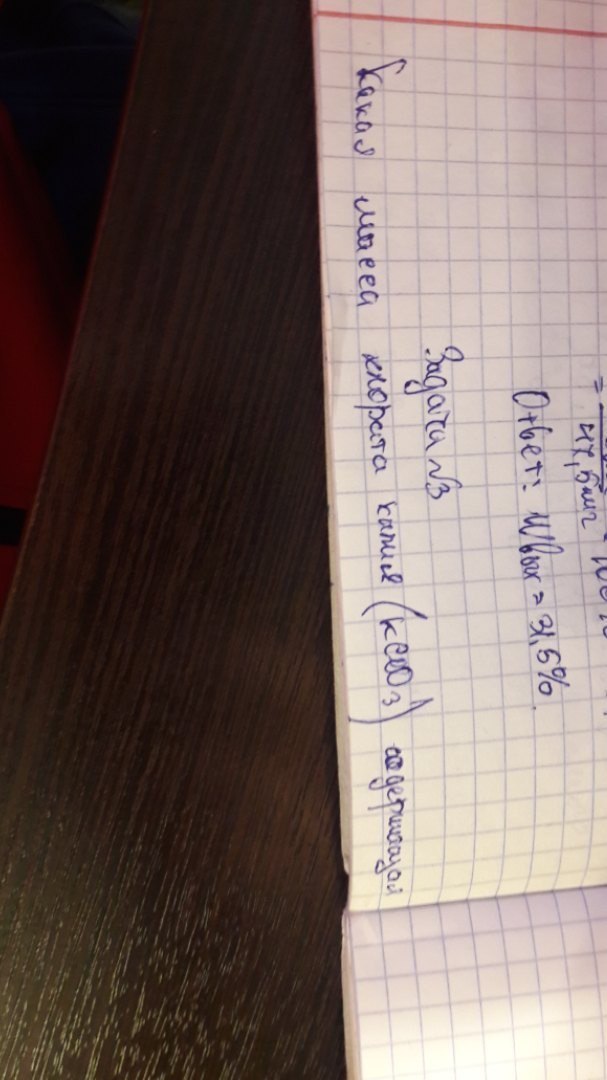 = 44,5мг
Ответ: Wвых = 31,5%.
Задача №3
Какая масса хлората калия (KClO3) содержащая